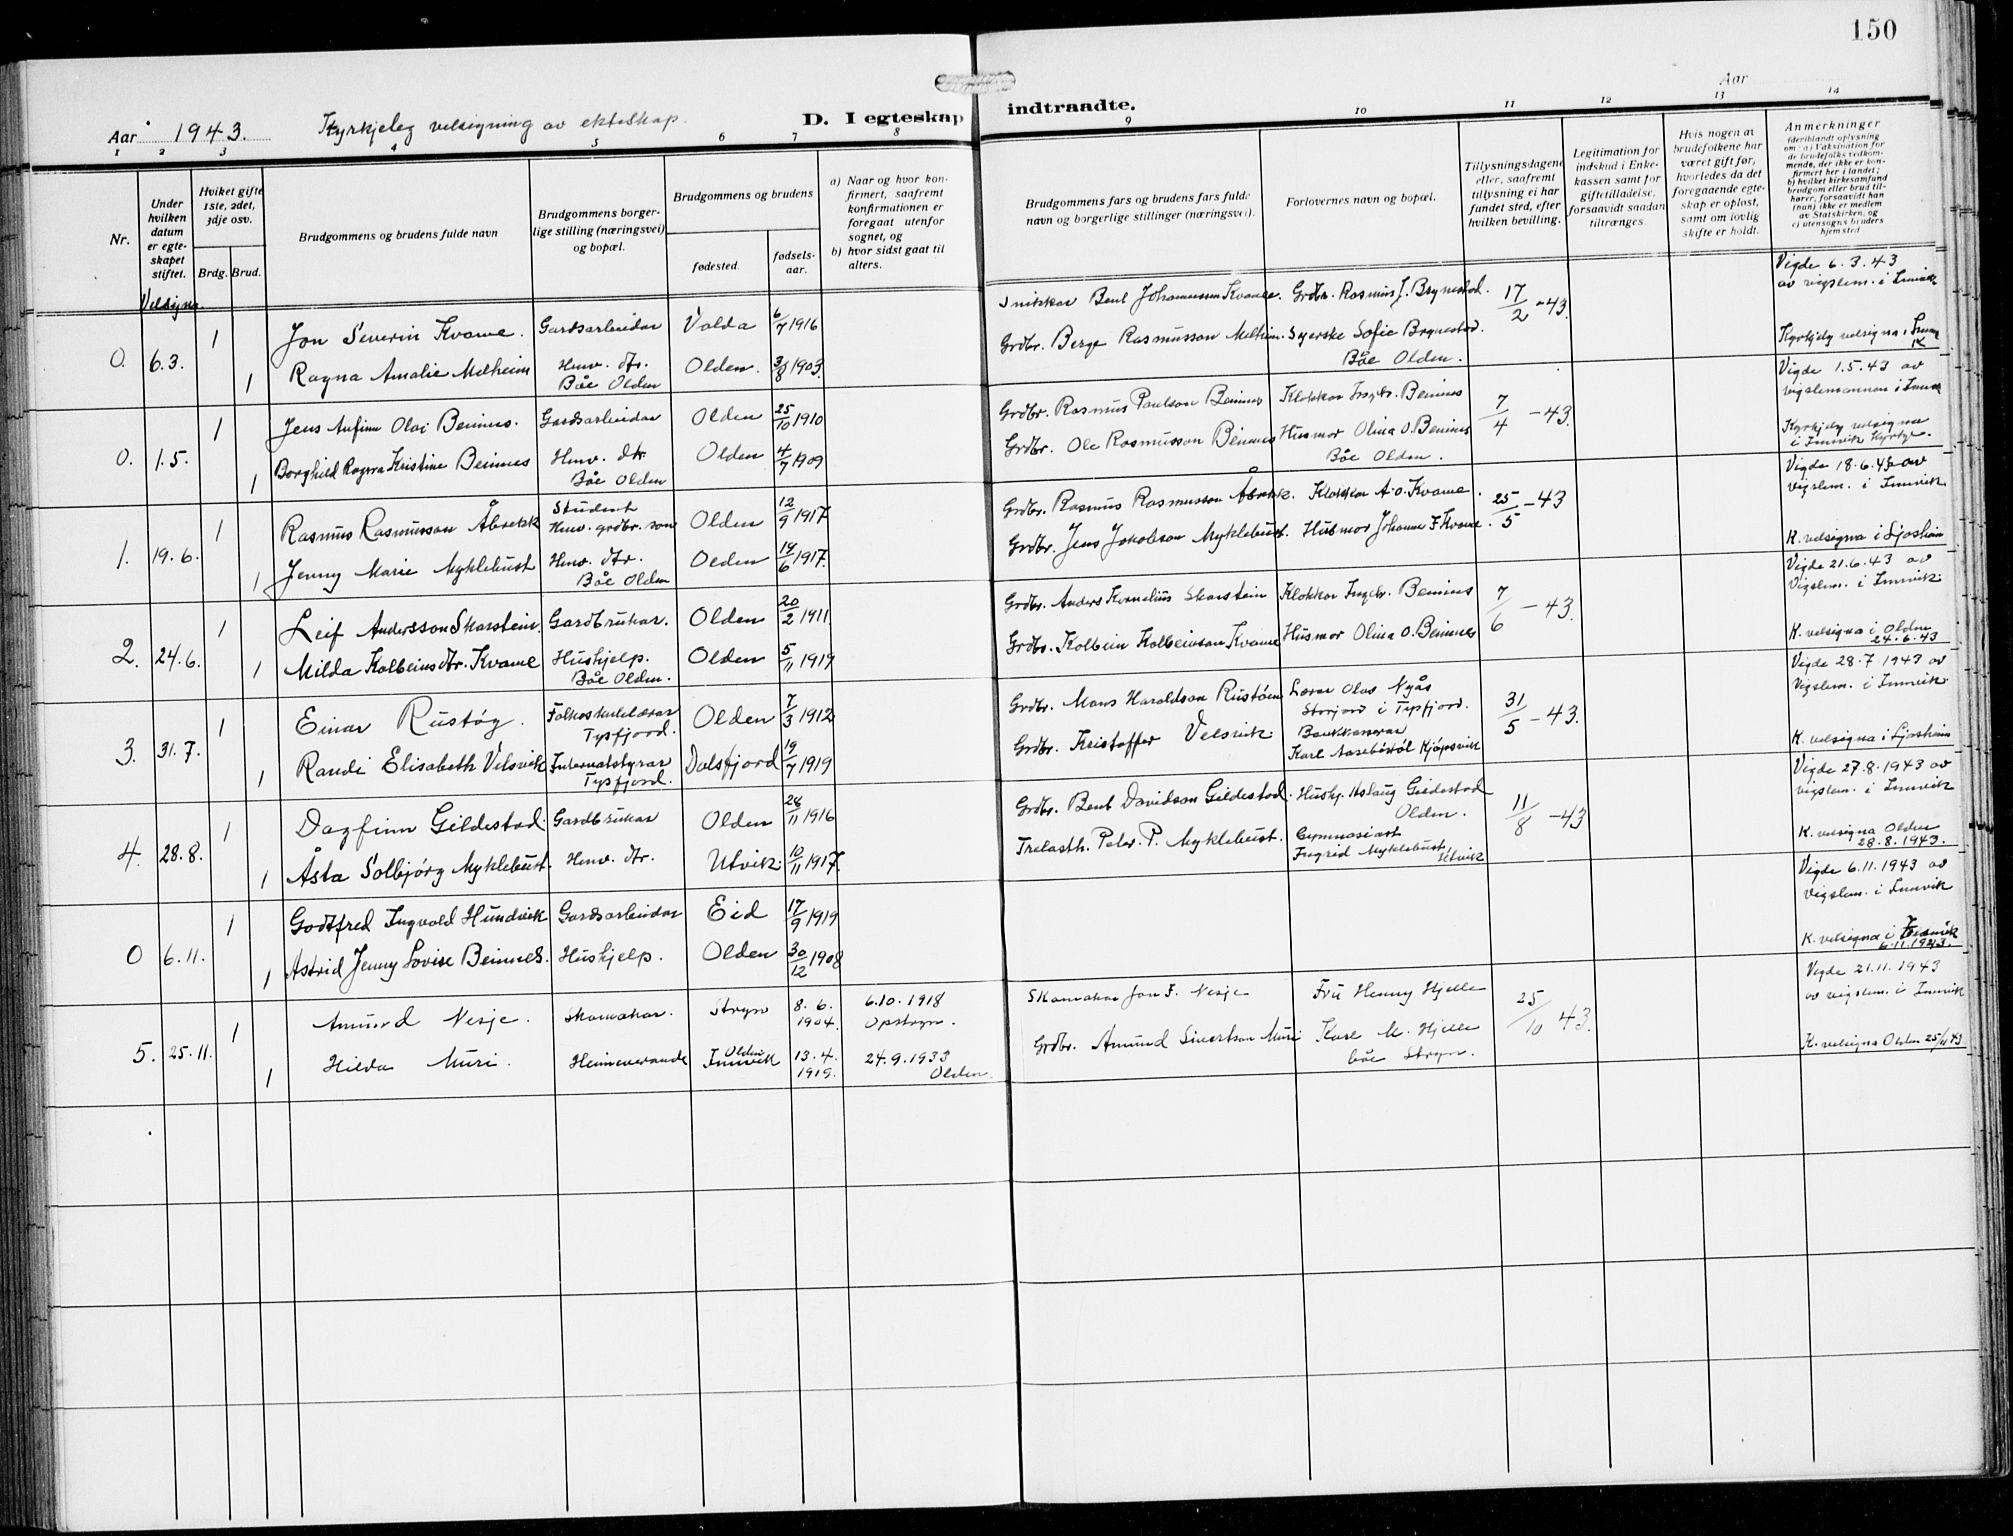 150
Aar 1943. Kyrkjeleg velsigning av ekteskap. D. I egteskap indtraadte. Aar
1 2 3 4 5 6 7 8 9 10 11 12 13 14
Nr.
Under hvilken datum er egteskapet stiftet.
Hvilket gifte 1ste, 2det, 3dje osv.
Brdg. Brud.
Brudgommens og brudens fulde navn
Brudgommens borgerlige stilling (næringsvei) og bopæl.
Brudgommens og brudens
fødested.
fødselsaar.
a) Naar og hvor konfirmert, saafremt konfirmationen er foregaat utenfor sognet, og
b) hvor sidst gaat til alters.
Brudgommens fars og brudens fars fulde navn og borgerlige stillinger (næringsvei).
Forlovernes navn og bopæl.
Tillysningsdagene eller, saafremt tillysning ei har fundet sted, efter hvilken bevilling.
Legitimation for indskud i Enkekassen samt for giftetilladelse, forsaavidt saadan tiltrænges.
Hvis nogen av brudefolkene har været gift før, hvorledes da det foregaaende egteskap er opløst, samt om lovlig skifte er holdt.
Anmerkninger
(deriblandt oplysning om: a) Vaksination for de brudefolks vedkommende, der ikke er konfirmert her i landet; b) hvilket kirkesamfund brudgom eller brud tilhører, forsaavidt han (hun) ikke er medlem av Statskirken, og c) utensogns bruders hjemsted
Velsigna
0. 6.3. 1 Jon Severin Kvame. Gardsarbeidar Volda 6/7 1916 Snikkar Bent Johannessen Kvame. Grdbr. Rasmus J. Brynestad. 17/2-43. Vigde 6.3.43 av vigslem. i Innvik
1 Ragna Amalie Melheim Hmv. dtr. Båe Olden Olden. 3/8 1903. Grdbr. Berge Rasmusson Melheim. Syerske Sofie Brynestad. Båe Olden. Kyrkjeleg velsigna i Innvik
0. 1.5. 1 Jens Anfinn Olai Beinnes. Gardsarbeidar Olden 25/10 1910 Grdbr. Rasmus Paulson Beinnes Klokkar Ingebr. Beinnes 7/4-43. Vigde 1.5.43 av vigslemannen i Innvik
1 Borghild Ragna Kristine Beinnes Hmv. dtr. Båe Olden Olden 4/7 1909 Grdbr. Ole Rasmusson Beinnes Husmor Olina O. Beinnes Båe Olden. Kyrkjeleg velsigna i Innvik Kyrkje.
1. 19.6. 1 Rasmus Rasmusson Åbrekk Student Hmv. grdbr. son Olden 12/9 1917 Grdbr. Rasmus Rasmusson Åbrekk. Klokkar A. O. Kvame. 25/5-43 Vigde 18.6.43 av vigslem. i Innvik
1 Jenny Marie Myklebust Hmv. dtr. Båe Olden Olden 14/6 1917. Grdbr. Jens Jakobson Myklebust. Husmor Johanne F. Kvame. K. velsigna i Ljosheim
2. 24.6. 1 Leif Andersson Skarstein. Gardbrukar. Olden 20/2 1911 Grdbr. Anders Kornelius Skarstein Klokkar Ingebr. Beinnes 7/6-43. Vigde 21.6.43 av Vigslem. i Innvik.
1 Milda Kolbeinsdtr. Kvame Hushjelp. Båe Olden. Olden 5/11 1919 Grdbr. Kolbein Kolbeinson Kvame Husmor Olina O. Beinnes K. velsigna i Olden 24.6.43
3. 31.7. 1 Einar Rustøy. Folkeskulelærar Tysfjord. Olden 7/3 1912 Grdbr. Mons Haraldson Rustøen Lærar Olav Nyås Storjord i Tysfjord. 31/5-43. Vigde 28.7 1943 av Vigslem. i Innvik.
1 Randi Elisabeth Velsvik Internatstyrar Tysfjord. Dalsfjord 19/7 1919 Grdbr. Kristoffer Velsvik Bankkasserar Karl Aasebøstøl Kjøpsvik K. velsigna i Ljosheim
4. 28.8. 1 Dagfinn Gildestad. Gardbrukar Olden 28/11 1916 Grdbr. Bent Davidson Gildestad. Hushj. Aslaug Gildestad Olden. 11/8-43 Vigde 27.8.1943 av vigslem. i Innvik
1 Åsta Solbjørg Myklebust. Hmv. dtr. Utvik. 10/11 1917. Trelasth. Peter P. Myklebust. Gymnasiast Ingrid Myklebust, Utvik K. velsigna Olden 28.8.1943.
0 6.11. 1 Godtfred Ingvald Hundvik Gardsarbeidar Eid 17/9 1919 Vigde 6.11.1943 av vigslem. i Innvik
1 Astrid Jenny Lovise Beinnes. Hushjelp. Olden 30/12 1908 K. velsigna i Innvik 6.11.1943.
5. 25.11. 1 Amund Nesje. Skomakar. Stryn 8.6. 1904. 6.10.1918 Opstryn. Skomakar Jon F. Nesje Fru Henny Hjelle 25/10 43. Vigde 21.11.1943 av vigslem. i Innvik
1 Hilda Muri. Heimeverande Olden Innvik 13.4. 1919. 24.9.1933 Olden. Grdbr. Amund Sivertson Muri Karl M. Hjelle båe Stryn. K. velsigna Olden 25/11 43